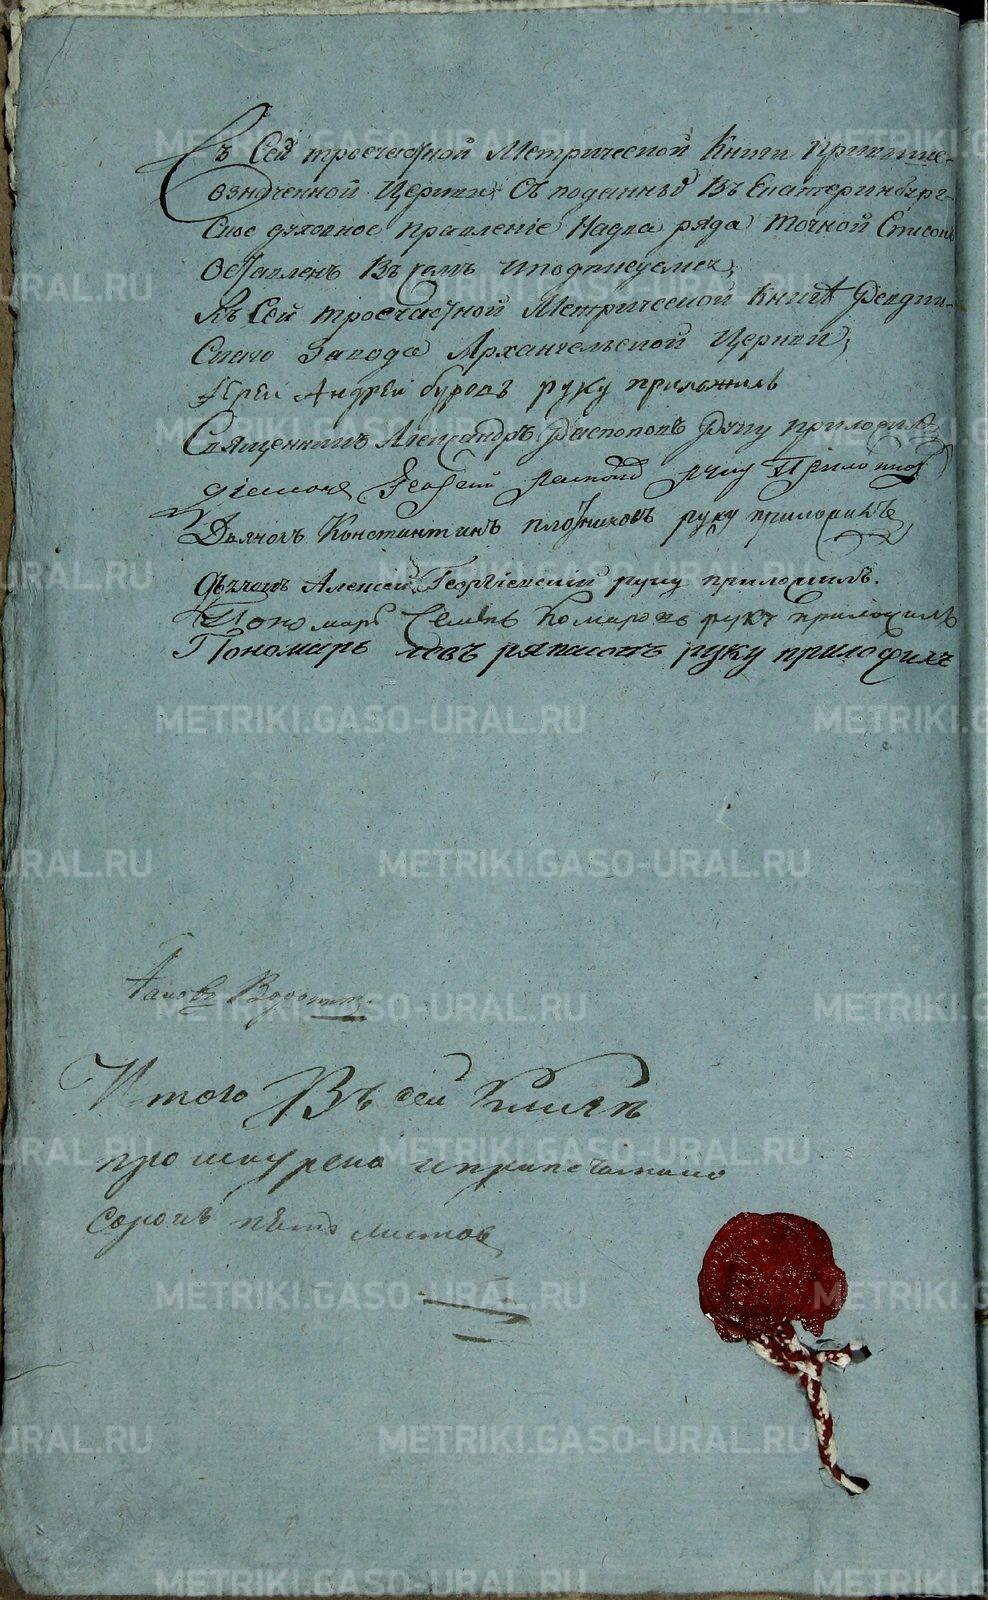 Съ Сей троечастной Метрической Книги при выше-
означенной Церкви съ поданныя Въ Екатеринбург-
ское духовное правленіе Надва ряда точной Списокъ
Оставленъ Въ чемъ иподписуемся;
Къ Сей троечастной Метрической Книге Ревдин-
скаго Завода Архангельской Церкви;
Іерей Андрей буровъ руку приложилъ
Священникъ Александръ распоповъ руку приложилъ
діаконъ Георгий руку Приложилъ
Дьячокъ Константинъ плотниковъ руку приложилъ
Дьячокъ Алексей Георгіевский руку приложилъ.
Пономарь Семенъ Комаровъ руку приложилъ
Пономарь левъ руку приложилъ
Итого Въ сей Книге
прошнурено и припечатано
сорокъ пять листовъ
METRIKI.GASO-URAL.RU